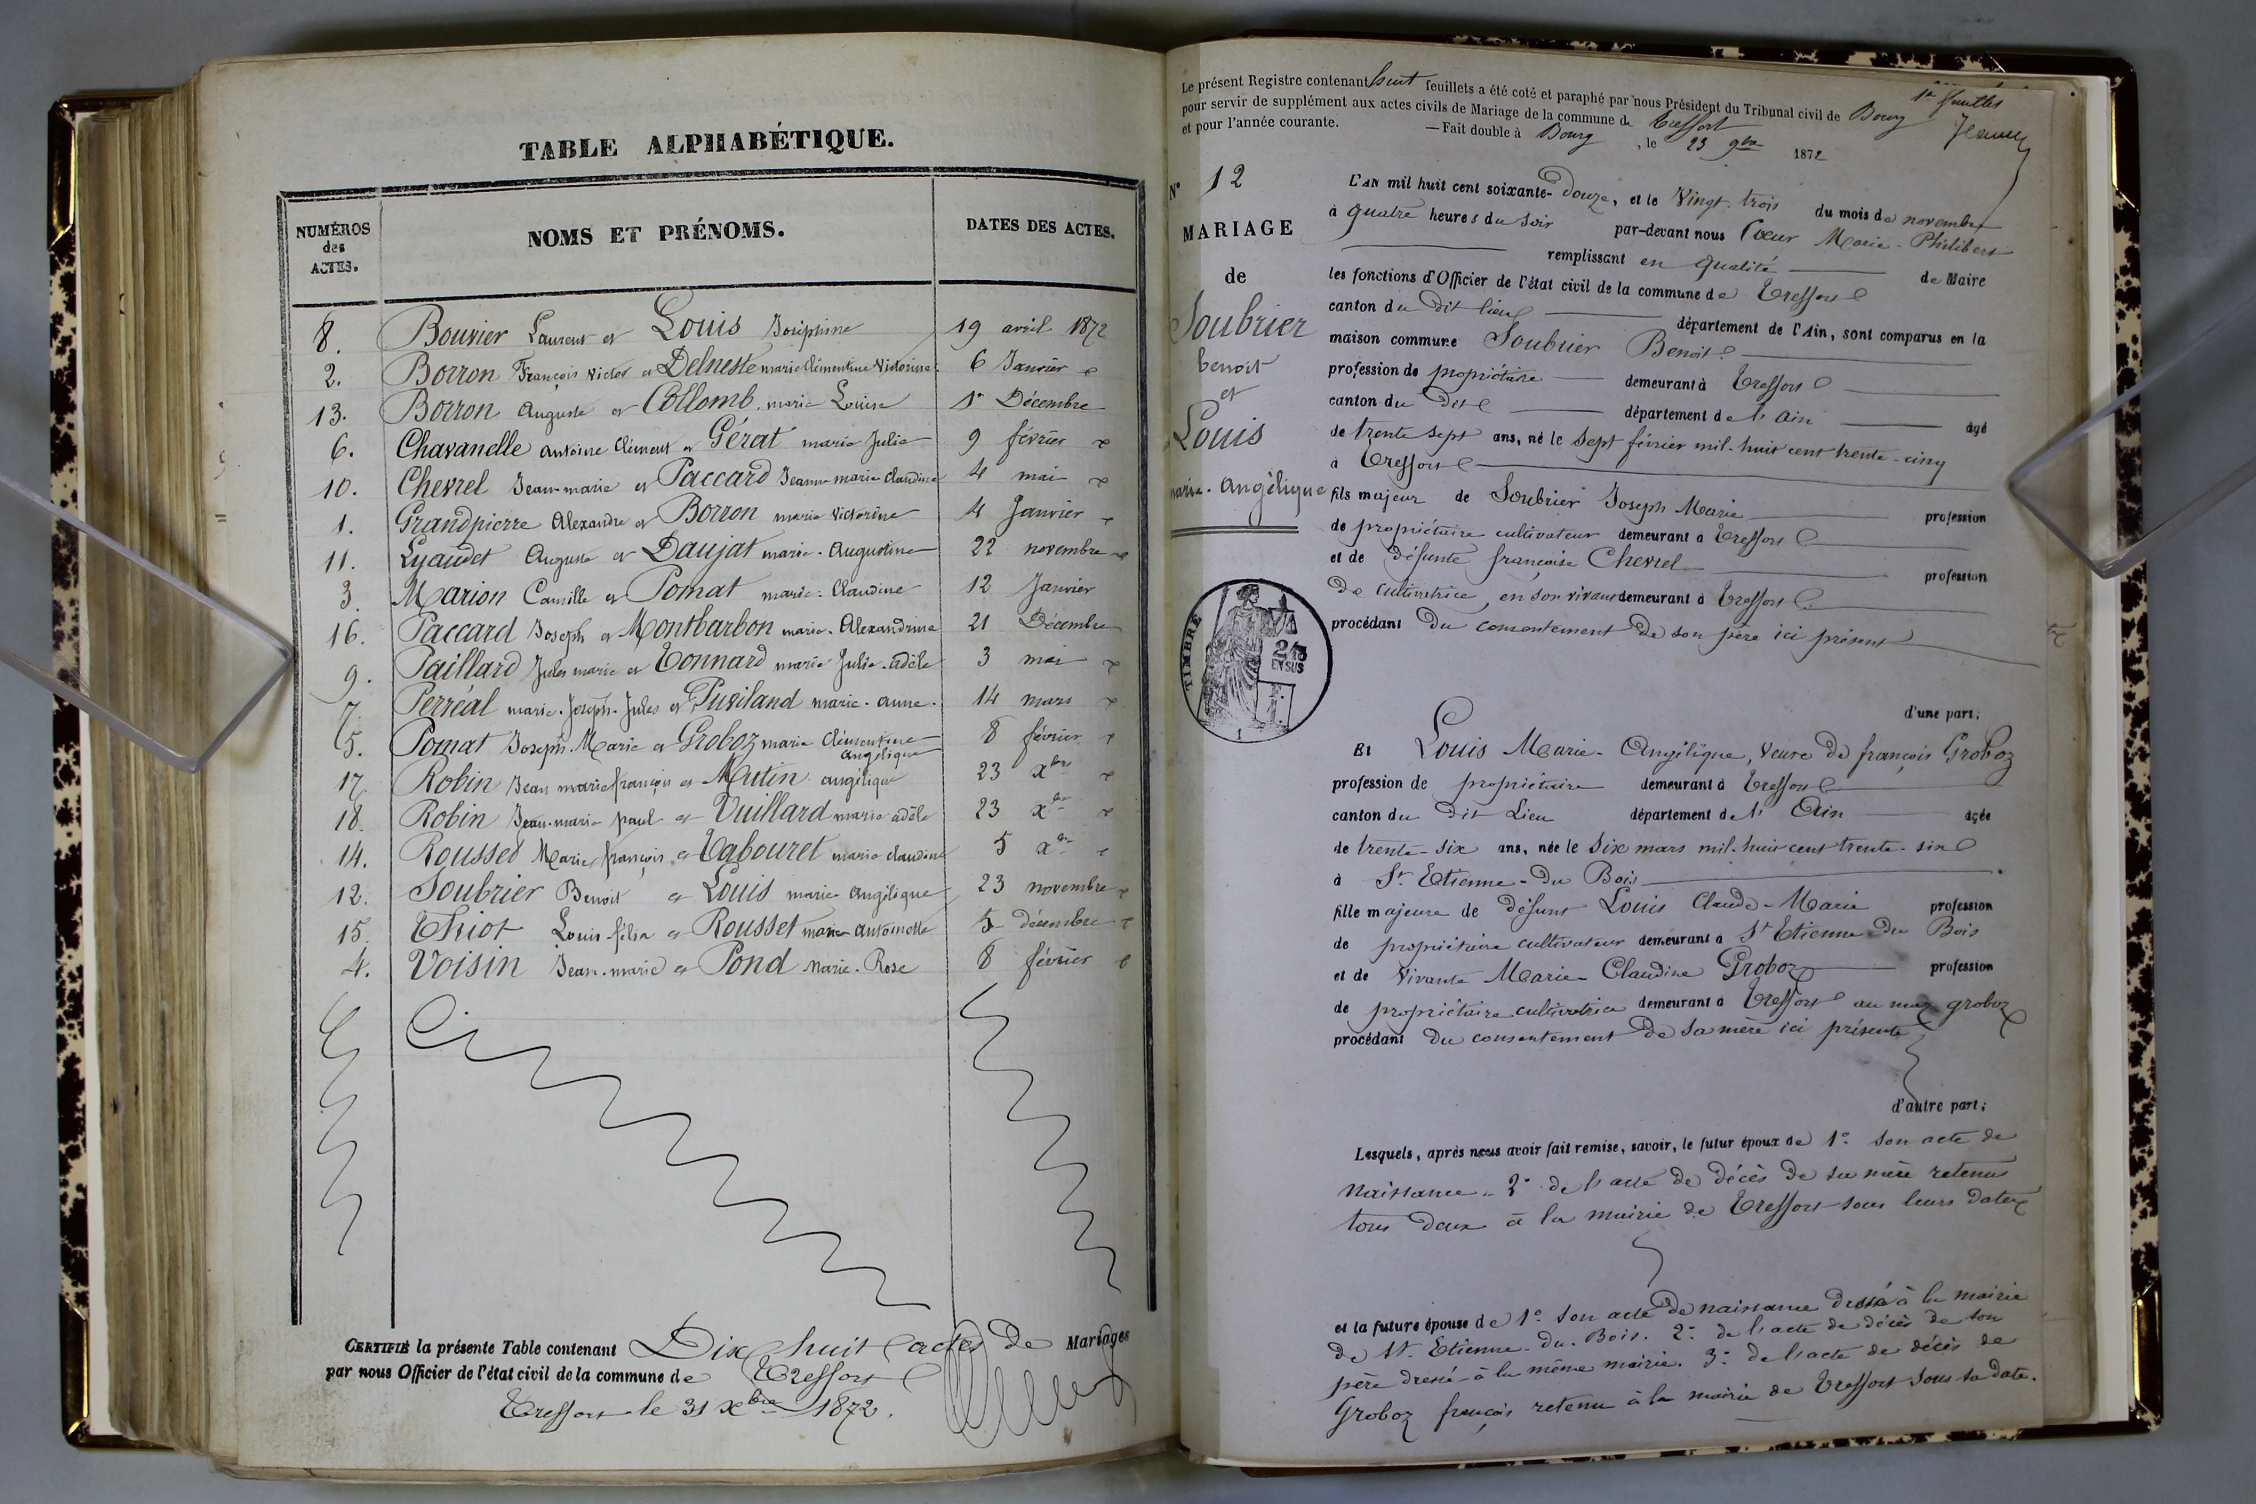 TABLE ALPHABÉTIQUE.
NUMÉROS des ACTES. NOMS ET PRÉNOMS. DATES DES ACTES.
8. Bouvier Laurent et Louis Joséphine 19 avril 1872
2. Borron François Victor et Delneste marie Clémentine Victorine 6 Janvier
13. Borron Auguste et Collomb marie Louise 1er Décembre
6. Chavanelle antoine Clément et Gérat marie Julie 9 février
10. Chevrel Jean-marie et Paccard Jeanne marie Claudine 4 mai
1. Grandpierre Alexandre et Borron marie Victorine 4 Janvier
11. Lyaudet Auguste et Daujat marie-Augustine 22 novembre
3. Marion Camille et Pomat marie-Claudine 12 Janvier
16. Paccard Joseph et Montbarbon marie-Alexandrine 21 Décembre
9. Paillard Jules marie et Tonnard marie Julie-adèle 3 mai
7. Perréal marie-Joseph-Jules et Puviland marie-anne. 14 mars
5. Pomat Joseph-Marie et Groboz marie Clémentine angélique 8 février
17 Robin Jean marie françois et Mutin angélique 23 xbre
18. Robin Jean-marie paul et Vuillard marie adèle 23 xbre
14. Rousset Marie françois et Tabouret marie claudine 5 xbre
12. Soubrier Benoit et Louis marie Angélique 23 novembre
15. Thiot Louis félix et Rousset marie antoinette 5 décembre
4. Voisin Jean-marie et Pond Marie-Rose 8 février
CERTIFIÉ la présente Table contenant Dix huit actes de Mariages
par nous Officier de l'état civil de la commune de Treffort
Treffort le 31 xbre 1872.
Le présent Registre contenant huit feuillets a été coté et paraphé par nous Président du Tribunal civil de Bourg
pour servir de supplément aux actes civils de Mariage de la commune de Treffort
et pour l'année courante. —Fait double à Bourg, le 23 9bre 1872
N° 12
MARIAGE
de
Soubrier
benoit
et
Louis
marie-Angélique
TIMBRE
L'AN mil huit cent soixante-Douze, et le Vingt-trois du mois de novembre
à quatre heures du soir par-devant nous Coeur Marie-Philibert
remplissant en qualité de Maire
les fonctions d'Officier de l'état civil de la commune de Treffort
canton du dit lieu département de l'Ain, sont comparus en la
maison commune Soubrier Benoit
profession de propriétaire demeurant à Treffort
canton du dit département de l'ain âgé
de trente sept ans, né le sept février mil-huit cent trente-cinq
à Treffort
fils majeur de Soubrier Joseph Marie profession
de propriétaire cultivateur demeurant à Treffort
et de défunte françoise Chevrel profession
de cultivatrice, en son vivant demeurant à Treffort
procédant du consentement de son père ici présent
d'une part;
Et Louis Marie-Angélique, Veuve de françois Groboz
profession de propriétaire demeurant à Treffort
canton du dit Lieu département de l'Ain âgée
de trente-six ans, née le six mars mil-huit cent trente-six
à St. Etienne-du Bois
fille majeure de défunt Louis Claude-Marie profession
de propriétaire cultivateur demeurant à St Etienne du Bois
et de Vivante Marie-Claudine Groboz profession
de propriétaire cultivatrice demeurant à Treffort au mas groboz
procédant du consentement de sa mère ici présente
d'autre part;
Lesquels, après nous avoir fait remise, savoir, le futur époux de 1° son acte de
naissance-2° de l'acte de décès de sa mère retenus
tous deux à la mairie de Treffort sous leurs dates
et la future épouse de 1° son acte de naissance dressé à la mairie
de St. Etienne-du-Bois. 2° de l'acte de décès de son
père dressé à la même mairie. 3° de l'acte de décès de
Groboz françois retenu à la mairie de Treffort sous sa date.